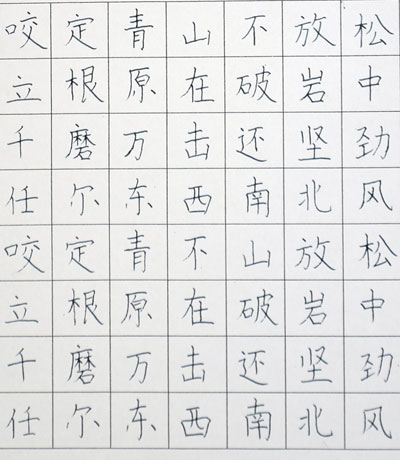 咬定青山不放松
立根原在破岩中
千磨万击还坚劲
任尔东西南北风
咬定青不山放松
立根原在破岩中
千磨万击还坚劲
任尔东西南北风